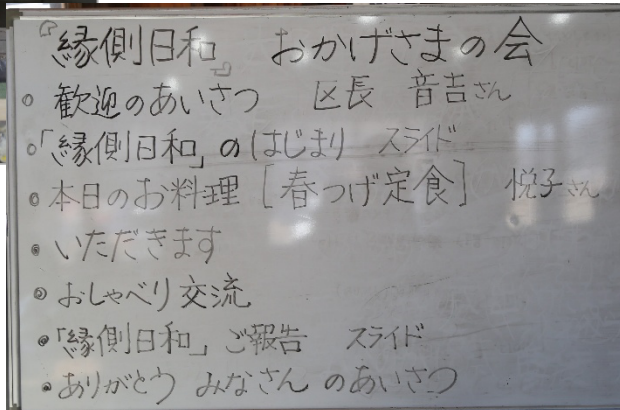 『縁側日和』 おかげさまの会
○ 歓迎のあいさつ 区長 音吉さん
○ 「縁側日和」のはじまり スライド
○ 本日のお料理 [春つげ定食] 悦子さん
○ いただきます
○ おしゃべり交流
○ 「縁側日和」ご報告 スライド
○ ありがとう みなさん のあいさつ